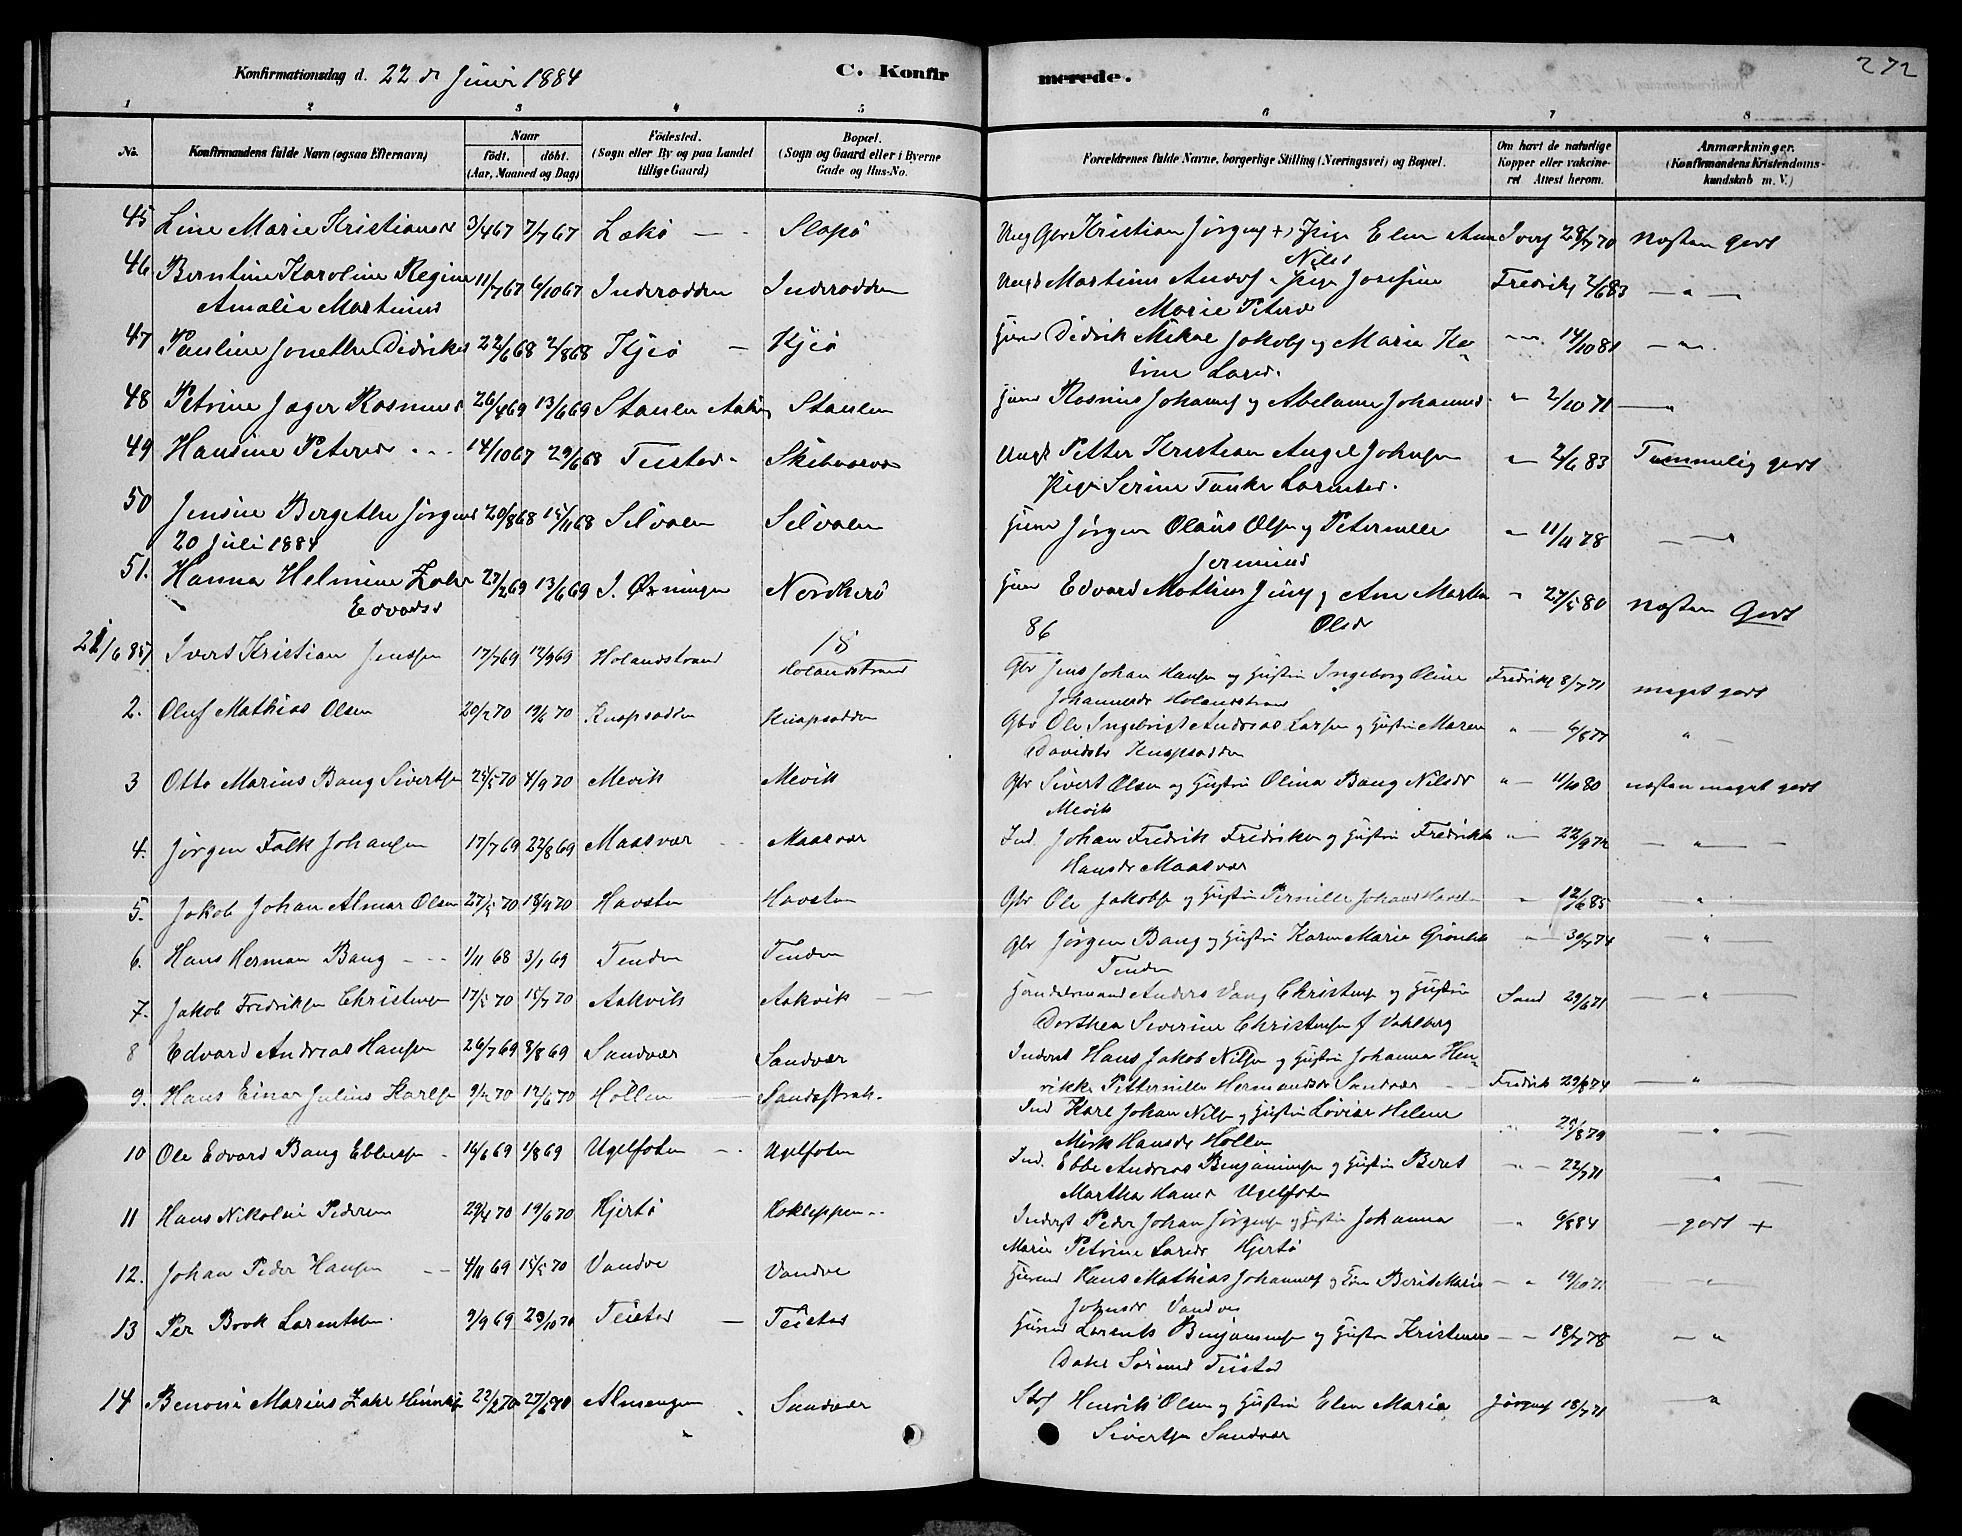 Konfirmationsdag d. 22 de Juni 1884
C. Konfirmerede.
272
1 2 3 4 5 6 7 8
No.
Konfirmandens fulde Navn (ogsaa Efternavn)
Naar
födt. döbt.
(Aar, Maaned og Dag)
Födested.
(Sogn eller By og paa Landet tillige Gaard)
Bopæl.
(Sogn og Gaard eller i Byerne Gade og Hus-No.
Forældrenes fulde Navne, borgerlige Stilling (Næringsvei) og Bopæl.
Om havt de naturlige Kopper eller vakcineret. Attest herom.
Anmærkninger.
(Konfirmandens Kristendomskundskab m. V.)
45 Line Marie Kristiansd 3/4 67 7/7 67 Lækö Slapö Ung Gbr Kristian Jørgens + Pige Elen Ane Nilsd 28/7 70 næsten godt
46 Berntine Karoline Regine Amalie Martinusd 11/7 67 6/10 67 Inderodden Inderodden Ungk Martinus Anders Pige Josefine Marie Petersd Fredriks 2/6 83 — " —
47 Pauline Jonette Didriksd 22/6 68 2/8 68 Kjeö Kjeö Huusm Didrik Mikal Jakobs og Marie Katrine Larsd. 14/10 81 — " —
48 Petrine Jæger Rasmusd 26/4 69 13/6 69 Staulen Staulen Huusm Rasmus Johannes og Abelone Johannesd " 2/10 71 — " —
49 Hansine Petersd 14/10 67 29/6 68 Teistad Skibsvær Ungk Petter Kristian Angel Johnsen Pige Serine Tanke Larentsd. " 2/6 83 Temmelig godt
50 Jensine Bergette Jørgensd 20/8 68 15/11 68 Silvalen Silvalen Huusm Jørgen Olaus Olsen og Peternille Jermund " 11/11 78 — " —
20 Juli 1884
51. Hanna Helmine Zahl Edvardsd 27/2 69 13/6 69 I. Øxningen Nordherö Huusm Edvard Mathias Jens og Ane Martha Olsdr " 27/5 80 næsten Godt
86 18
21/6 85 1 Ivert Kristian Jenssen 17/7 69 12/9 69 Holandstrand Holandstrand Gbr Jens Johan Hansen og Hustru Ingeborg Oline Johannesdr Holandstrand Fredriks 8/7 71 meget godt
2. Oluf Mathias Olsen 20/2 70 19/6 70 Knapsodden Knapsodden Gbr Ole Ingebrigt Andreas Larsen og Hustru Maren Davidsdr Knapsodden " — 6/8 77 " —
3 Otto Marius Bang Sivertsen 25/5 70 4/9 70 Mevik Mevik Gbr Sivert Olsen og Hustru Olina Bang Nilsdr Mevik " — 11/10 80 næsten meget godt
4. Jørgen Falk Johansen 17/7 69 22/8 69 Maasvær Maasvær Ind. Johan Fredrik Fredriksen og Hustru Fredrikke Hansdr Maasvær " 22/9 72 — " —
5. Jakob Johan Almar Olsen 27/5 70 18/9 70 Havsten Havsten Gbr Ole Jakobs og Hustru Pernille Johansd Havsten " 12/6 85 — " —
6. Hans Herman Bang 1/11 68 3/1 69 Tenden Tenden Gbr Jørgen Bang og Hustru Karen Marie Grönbek Tenden " — 30/7 74 — " —
7. Jakob Fredriksen Christensen 17/5 70 15/7 70 Aakvik Aakvik Handelsmand Anders Vang Christens og Hustru Dorthea Severine Christensen f Vahlberg Sand 29/6 71 — " —
8 Edvard Andreas Hansen 26/7 69 8/8 69 Sandvær Sandvær Inderst Hans Jakob Nilsen og Hustru Johanna Henrikke Petternille Hermansdr Sandvær Fredrik 29/8 74 — " —
9. Hans Einar Julius Karls 9/2 70 12/6 70 Höllen Sandsstrak. Ind Karl Johan Nils og Hustru Lovise Helene Mörk Hansdr Hollen " 25/8 79 — " —
10 Ole Edvard Bang Ebbesen 16/6 69 1/8 69 Ugelfoten Ugelfoten Ind. Ebbe Andreas Benjaminsen og Hustru Beret Martha Hansd Ugelfoten " — 22/7 71 — " —
11 Hans Nikolai Pedersen 29/4 70 19/6 70 Hjertö Kokleppen Inderst Peder Johan Jørgensen og Hustru Johanna Marie Petrine Larsdr Hjertö " 6/8 84 — godt +
12. Johan Peder Hansen 4/11 69 15/5 70 Vandve Vandve Huusmd Hans Mathias Johannes og Kone Berit Marie Johnsdr Vandve — " 19/10 71 — " —
13 Per Brok Larentsen 9/9 69 23/10 70 Teistad Teistad Huusmd Larents Benjaminsen og Hustru Kristense Dahl Sörensd Teistad — " — 18/7 78 — "
14 Benoni Marius Zahl Henriks 22/2 70 27/6 70 Almengen Sandvær Strf Henrik Olsen og Hustru Elen Maria Sivertsen Sandvær Jörgens 18/7 71 "